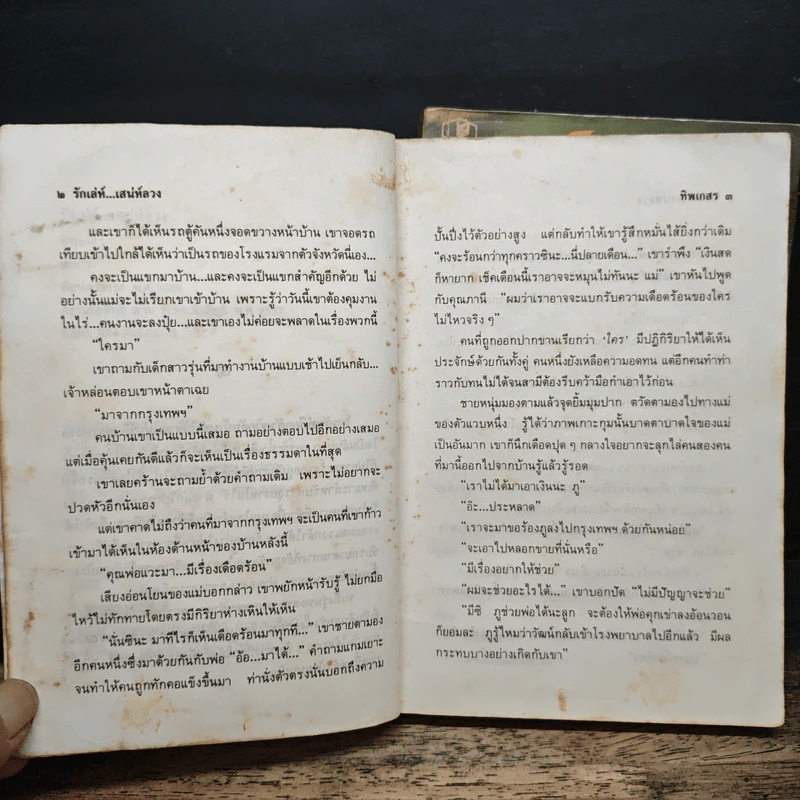 ๒ รักเล่ห์...เสน่ห์ลวง
และเขาก็ได้เห็นรถตู้คันหนึ่งจอดขวางหน้าบ้าน เขาจอดรถ
เทียบเข้าไปใกล้ก็ได้เห็นว่าเป็นรถของโรงแรมจากตัวจังหวัดนี่เอง...
คงจะเป็นแขกมาบ้าน...และคงจะเป็นแขกสำคัญอีกด้วย ไม่
อย่างนั้นแม่จะไม่เรียกเขาเข้าบ้าน เพราะรู้ว่าวันนี้เขาต้องคุมงาน
ในไร่...คนงานจะลงปุ๋ย...และเขาเองไม่ค่อยจะพลาดในเรื่องพวกนี้
“ใครมา”
เขาถามกับเด็กสาวรุ่นที่มาทำงานบ้านแบบเช้าไปเย็นกลับ...
เจ้าหล่อนตอบเขาหน้าตาเฉย
“มาจากกรุงเทพฯ”
คนบ้านเขาเป็นแบบนี้เสมอ ถามอย่างตอบไปอีกอย่างเสมอ
แต่เมื่อคุ้นเคยกันดีแล้วก็จะเห็นเป็นเรื่องธรรมดาในที่สุด
เขาเลยคร้านจะถามย้ำด้วยคำถามเดิม เพราะไม่อยากจะ
ปวดหัวอีกนั่นเอง
แต่เขาคาดไม่ถึงว่าคนที่มาจากกรุงเทพฯ จะเป็นคนที่เขาก้าว
เข้ามาได้เห็นในห้องด้านหน้าของบ้านหลังนี้
“คุณพ่อแวะมา...มีเรื่องเดือดร้อน”
เสียงอ่อนโยนของแม่บอกกล่าว เขาพยักหน้ารับรู้ ไม่ยกมือ
ไหว้ไม่ทักทายโดยตรงมีกิริยาห่างเหินให้เห็น
“นั่นซินะ มาทีไรก็เห็นเดือดร้อนมาทุกที...” เขาชายตามอง
อีกคนหนึ่งซึ่งมาด้วยกันกับพ่อ “อ้อ...มาได้...” คำถามแกมเยาะ
จนทำให้คนถูกทักคอแข็งขึ้นมา ท่านั่งตัวตรงนั่นบอกถึงความ
ทิพเกสร ๓
ปั้นปึ่งไว้ตัวอย่างสูง แต่กลับทำให้เขารู้สึกหมั่นไส้ยิ่งกว่าเดิม
“คงจะร้อนกว่าทุกคราวซินะ...นี่ปลายเดือน...” เขารำพึง “เงินสด
ก็หายาก เช็คเดือนนี้เราอาจจะหมุนไม่ทันนะ แม่” เขาหันไปพูด
กับคุณภานี “ผมว่าเราอาจจะแบกรับความเดือดร้อนของใคร
ไม่ไหวจริง ๆ”
คนที่ถูกออกปากขานเรียกว่า ‘ใคร’ มีปฏิกิริยาให้ได้เห็น
ประจักษ์ด้วยกันทั้งคู่ คนหนึ่งยังเหลือความอดทน แต่อีกคนทำท่า
ราวกับทนไม่ได้จนสามีต้องรีบคว้ามือกำเอาไว้ก่อน
ชายหนุ่มมองตามแล้วจุดยิ้มมุมปาก ตวัดตามองไปทางแม่
ของตัวแวบหนึ่ง รู้ได้ว่าภาพเกาะกุมนั้นบาดตาบาดใจของแม่
เป็นอันมาก เขาก็นึกเดือดปุด ๆ กลางใจอยากจะลุกไล่คนสองคน
ที่มานี้ออกไปจากบ้านรู้แล้วรู้รอด
“เราไม่ได้มาเอาเงินนะ ภู”
“อ๊ะ...ประหลาด”
“เราจะมาขอร้องภูลงไปกรุงเทพฯ ด้วยกันหน่อย”
“จะเอาไปหลอกขายที่นั่นหรือ”
“มีเรื่องอยากให้ช่วย”
“ผมจะช่วยอะไรได้...” เขาบอกปัด “ไม่มีปัญญาจะช่วย”
“มีซิ ภูช่วยพ่อได้นะลูก จะต้องให้พ่อคุกเข่าลงอ้อนวอน
ก็ยอมละ ภูรู้ไหมว่าวัฒน์กลับเข้าโรงพยาบาลไปอีกแล้ว มีผล
กระทบบางอย่างเกิดกับเขา”